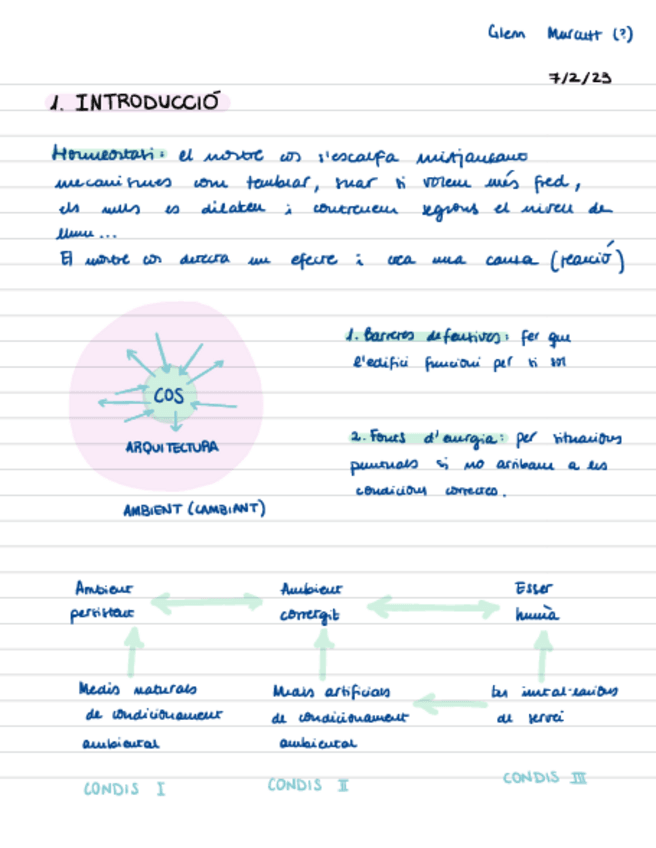 Glenn Murcutt (?)
7/2/23
1. INTRODUCCIÓ
Homeostasi: el nostre cos s'escalfa mitjançant
mecanismes com temblar, suar si volem més fred,
els ulls es dilaten i contreuen segons el nivell de
llum...
El nostre cos detecta un efecte i crea una causa (reacció)
COS
ARQUITECTURA
AMBIENT (CAMBIANT)
1. Barreres defensives: fer que
l'edifici funcioni per si sol
2. Fonts d'energia: per situacions
puntuals si no arribam a les
condicions correctes.
Ambient
persistent
Ambient
corregit
Esser
humà
Medis naturals
de condicionament
ambiental
Medis artificials
de condicionament
ambiental
les instal·lacions
de servei
CONDIS I
CONDIS II
CONDIS III